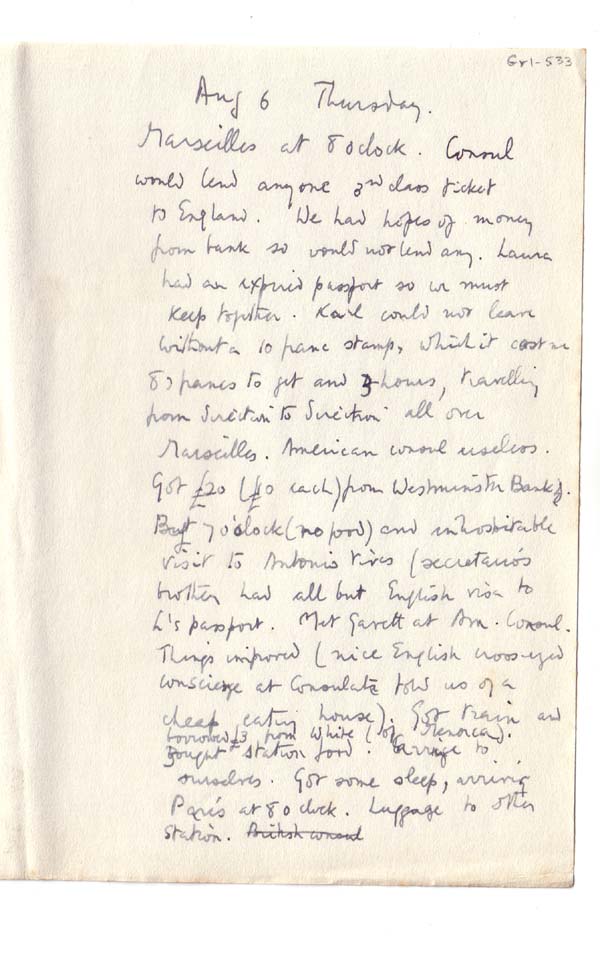 Gr1-533
Aug 6 Thursday.
Marseilles at 8 oclock. Consul
would lend anyone 3rd class ticket
to England. We had hopes of money
from bank so would not lend any. Laura
had an expired passport so we must
keep together. Karl could not leave
without a 10 franc stamp, which it cost me
87 francs to get and 3 hours, travelling
from direction to direction all over
Marseilles. American consul useless.
Got £20 (£10 each) from Westminster Bank.
But 7 o'clock (no food) and inhospitable
visit to Antonio Vives (secretario's
brother had all but English visa to
L's passport. Met Garett at Am. Consul.
Things improved (nice English cross-eyed
concierge at Consulate told us of a
cheap eating house). Got train and
borrowed £3 from White (of Menorca).
Bought station food. Carriage to
ourselves. Got some sleep, arriving
Paris at 8 o clock. Luggage to other
station. British consul